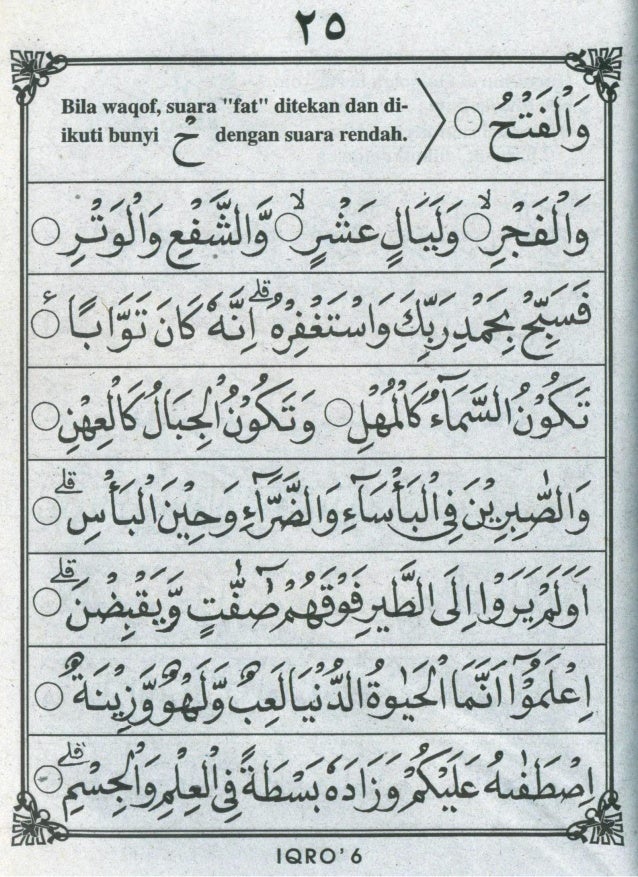 ٢٥
Bila waqof, suara "fat" ditekan dan di-
ikuti bunyi حْ dengan suara rendah.
وَالْفَتْحُ ○
وَالْفَجْرِ ۙ○ وَلَيَالٍ عَشْرٍ ۙ○ وَّالشَّفْعِ وَالْوَتْرِ ○
فَسَبِّحْ بِحَمْدِ رَبِّكَ وَاسْتَغْفِرْهُ ۗ اِنَّهٗ كَانَ تَوَّابًا ○
تَكُوْنُ السَّمَآءُ كَالْمُهْلِ ○ وَتَكُوْنُ الْجِبَالُ كَالْعِهْنِ ○
وَالصّٰبِرِيْنَ فِى الْبَأْسَآءِ وَالضَّرَّآءِ وَحِيْنَ الْبَأْسِ ۗ○
اَوَلَمْ يَرَوْا اِلَى الطَّيْرِ فَوْقَهُمْ صٰٓفّٰتٍ وَّيَقْبِضْنَ ۗ○
اِعْلَمُوْٓا اَنَّمَا الْحَيٰوةُ الدُّنْيَا لَعِبٌ وَّلَهْوٌ وَّزِيْنَةٌ ○
اِصْطَفٰىهُ عَلَيْكُمْ وَزَادَهٗ بَسْطَةً فِى الْعِلْمِ وَالْجِسْمِ ۗ○
IQRO' 6